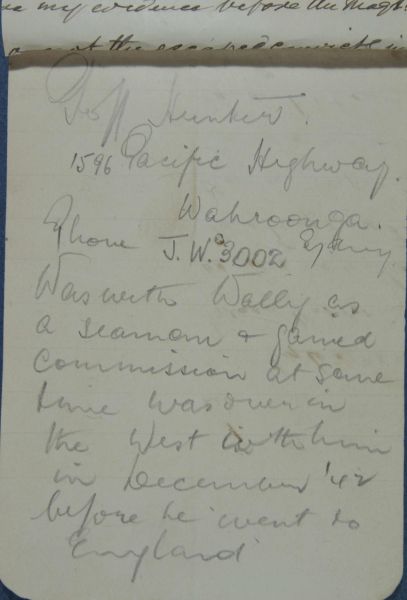 my evidence before the Magt
at the escaped convict in
Geoff Hunter.
1596 Pacific Highway.
Wahroonga.
Sydney
Phone J.W. 3002
Was with Wally as
a seaman & gained
commission at same
time was over in
the West with him
in December '42
before he went to
England